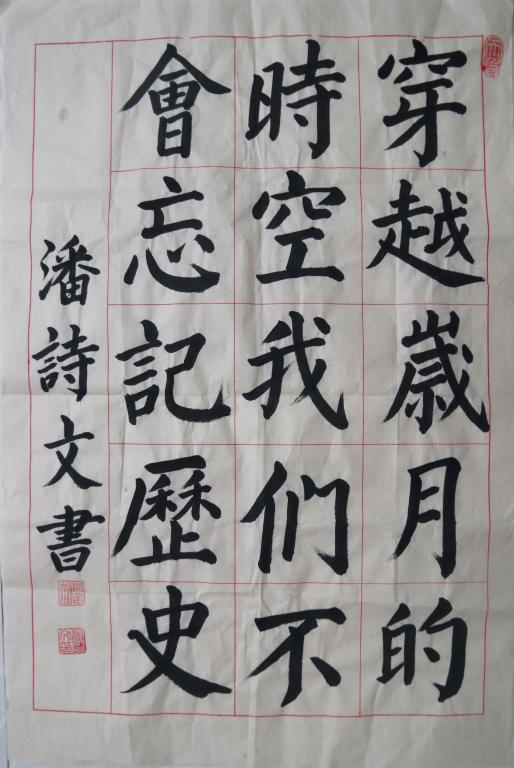 穿越歲月的
時空我们不
會忘記歷史
潘詩文書